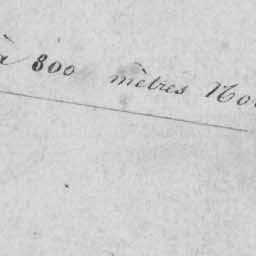 à 800 mètres No